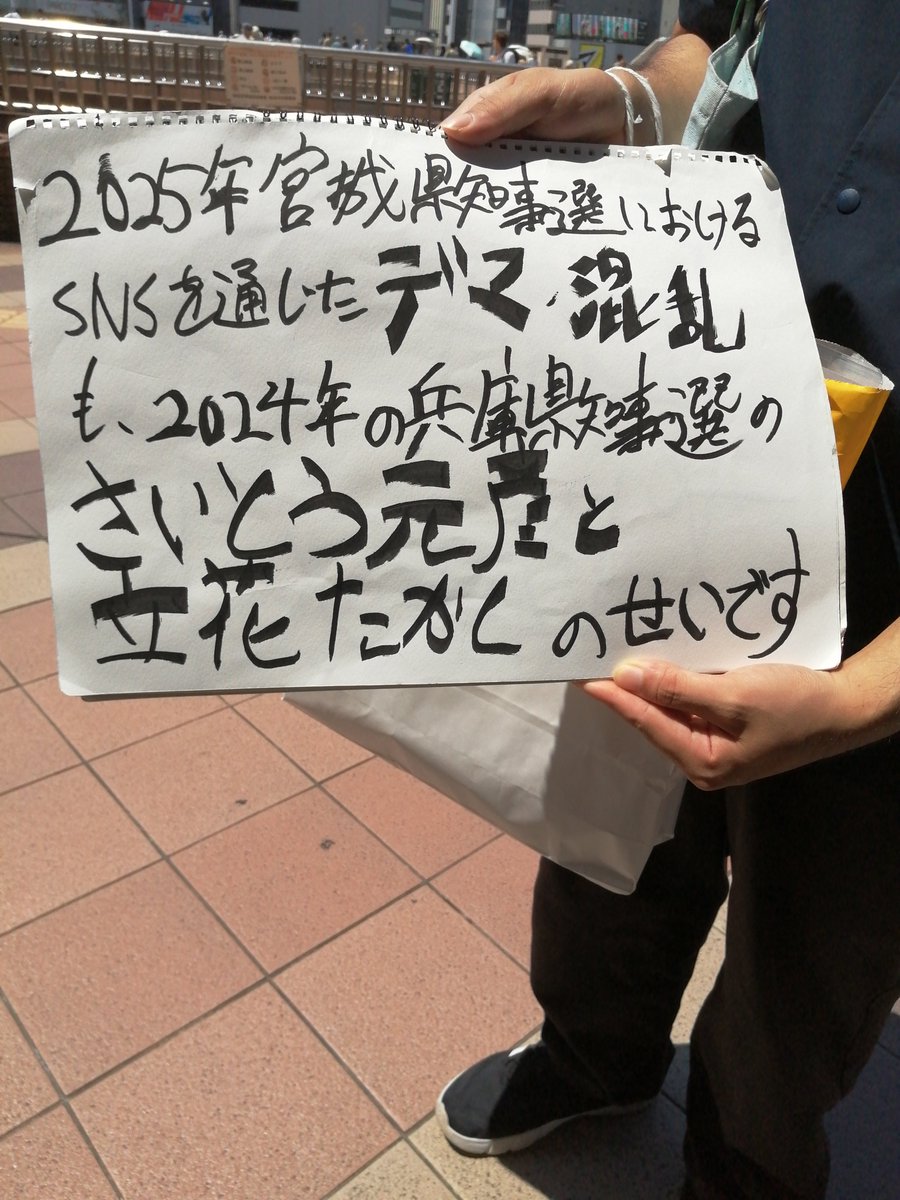 2025年宮城県知事選における
SNSを通じたデマ・混乱
も、2024年の兵庫県知事選の
さいとう元彦と
立花たかしのせいです